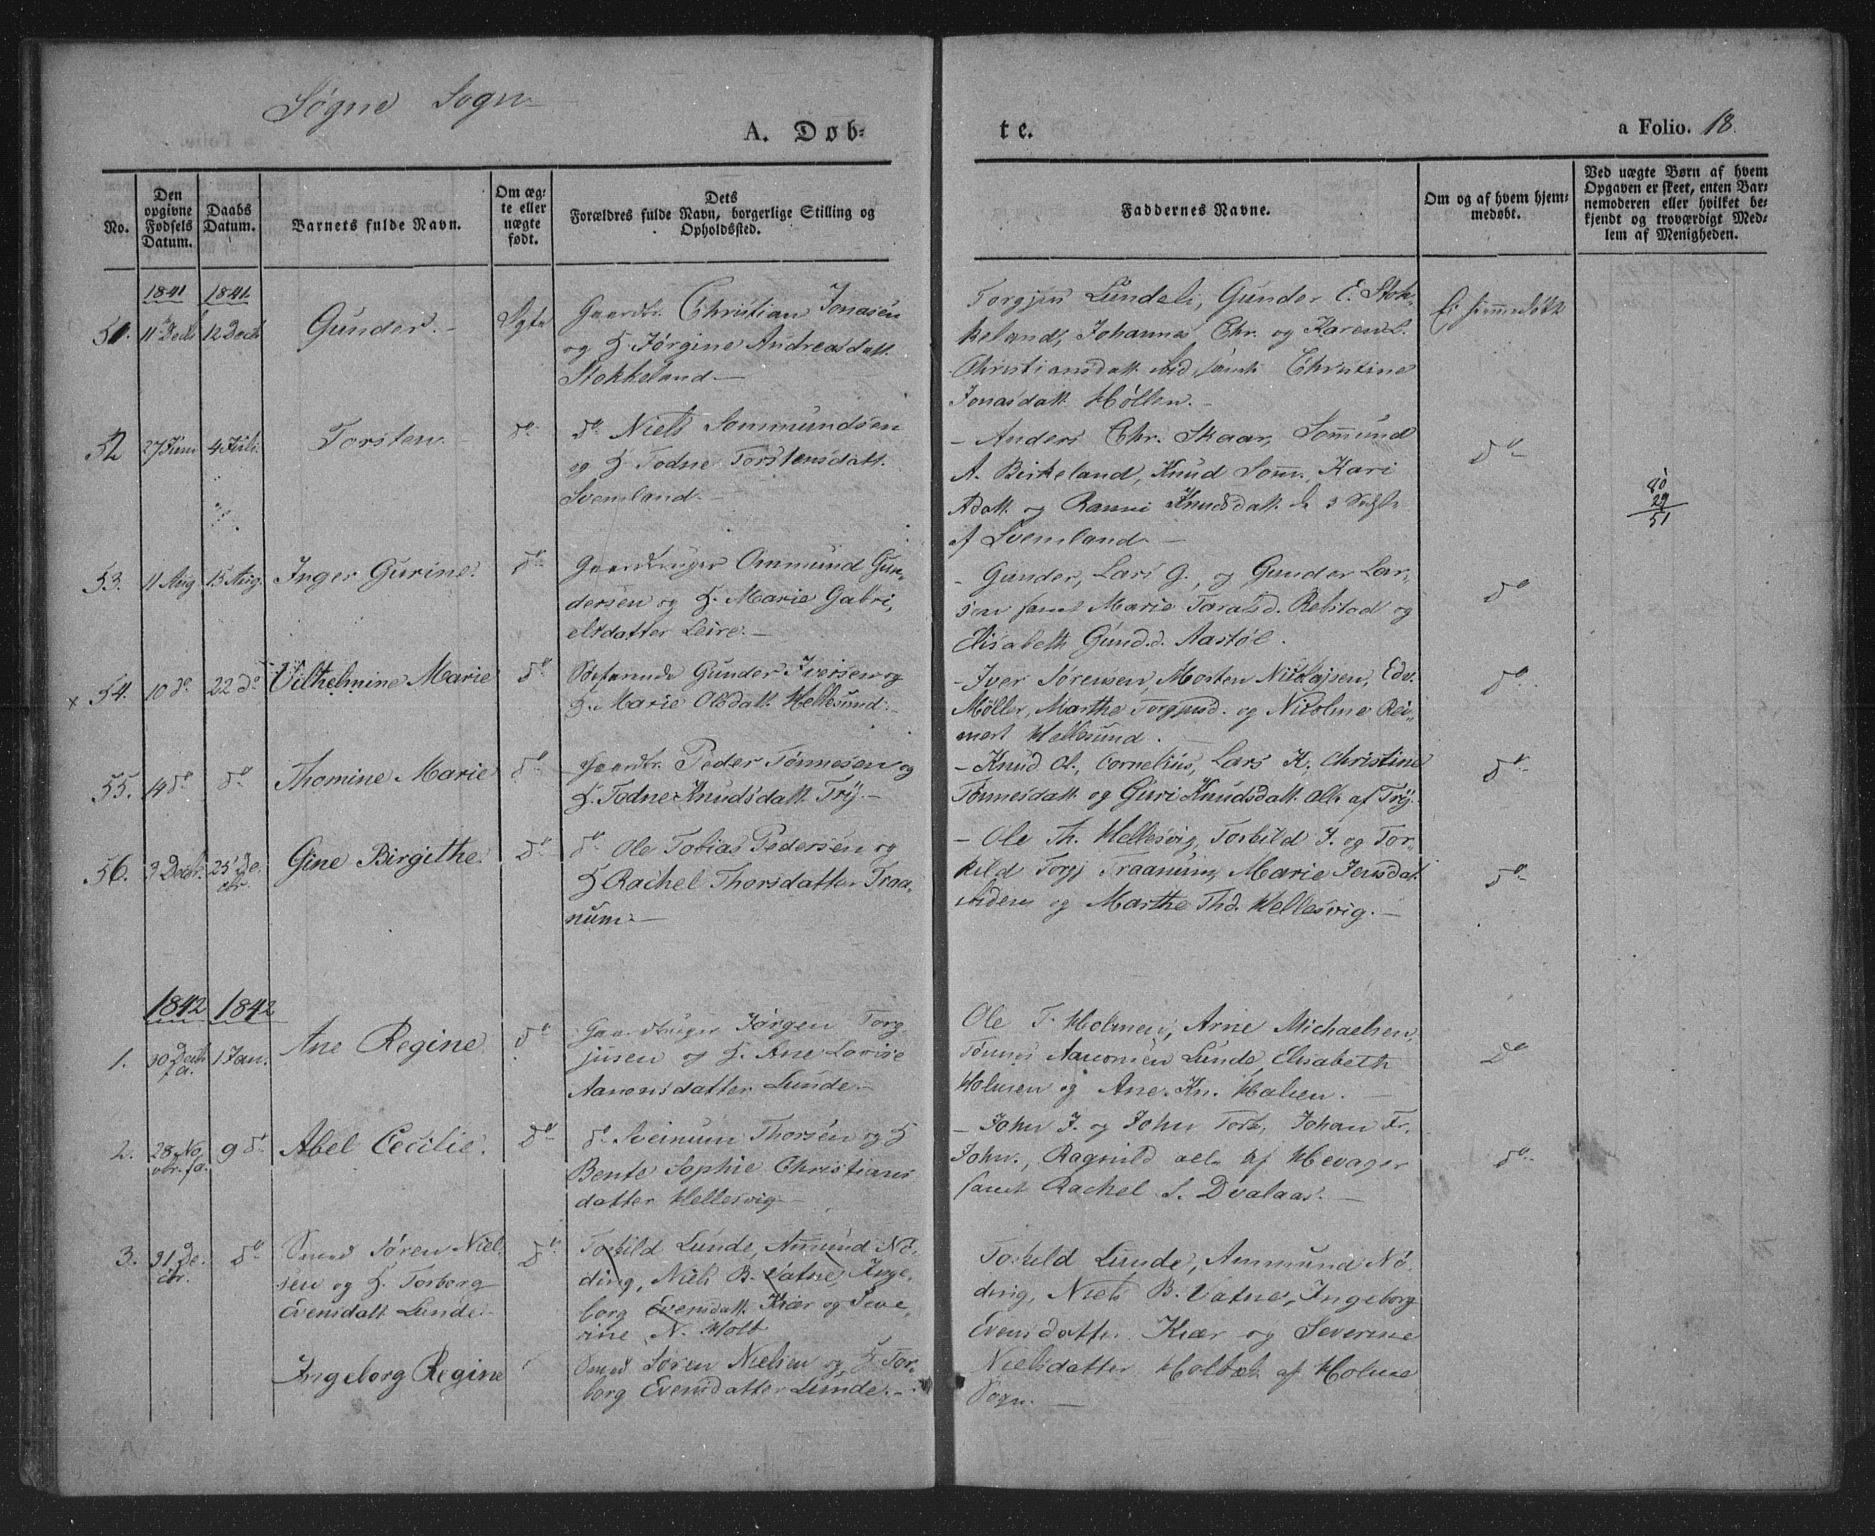 Søgne Sogn
A. Døb-
te.
a Folio. 18.
No.
Den opgivne Fødsels Datum.
Daabs Datum.
Barnets fulde Navn.
Om ægte eller uægte født.
Dets Forældres fulde Navn, borgerlige Stilling og Opholdssted.
Faddernes Navne.
Om og af hvem hjemmedøbt.
Ved uægte Børn af hvem Opgaven er skeet, enten Barnemoderen eller hvilket bekjendt og troværdigt Medlem af Menigheden.
1841 1841
51. 11 Decbr 12 Decbr Gunder. Ægte Gaardbr. Christian Jonasen
og H. Jørgine Andreasdatt.
Stokkeland
Gunder E. Stok-
keland, Johannes Chr. og Karen
Christiansdatt. samt Christine
Jonasdatt. Høllen.
Ei hjemmedøbt
52 27 Juni 4 Juli Torsten do do Niels Sommundsen
og H. Todne Torstensdatt.
Svemland.
- Anders Chr. Skaar, Sommund
A. Birkeland, Knud Som., Kari
Adatt. og Ranni Knudsdatt.
af Svemland
do
80
29
51
53. 11 Aug 15 Aug. Inger Gurine. do Gaardbruger Ommund Gun-
dersen og H. Marie Gabri-
elsdatter Leire.
- Gunder, Lars G., og Gunder Lar-
sen samt Marie Taralsd. Repstad og
Elisabeth Gundd. Aastøl.
do
x 54. 10 do 22 do Vilhelmine Marie do Søefarende Gunder Iversen og
H. Marie Olsdatt. Hellesund.
- Iver Sørensen, Morten Nicolajsen, Edv.
Møller, Marthe Torgjusd. og Nicoline Rei-
mert Hellesund.
do
55. 14 do do Thomine Marie do Gaardbr. Peder Tønnesen og
H. Todne Knudsdatt. Try.
- Knud Ol., Cornelius, Lars K., Christine
Tønnesdatt. og Guri Knudsdatt. alle af Try.
do
56. 3 Decbr. 25 De-
cbr. Gine Birgithe. do do Ole Tobias Pedersen og
H Rachel Thorsdatter Traa-
num.
- Ole Th. Hellesvig, Torkild J. og Tor-
kild Torgj. Traanum, Marie Jensdat.
og Marthe Thd. Hellesvig.
do
1842 1842
1. 30 Decbr
f. a. 1 Jan. Ane Regine do Gaardbruger Jørgen Torg-
jusen og H. Ane Lovise
Aanonsdatter Lunde.
Ole T. Holmen, Arne Michaelsen,
Tønnes Aanonsen Lunde, Elisabeth
Holmen og Ane Kn. Holmen.
do
2. 28 No-
vbr. f.a. 9 do Abel Cecilie. do do Sveinum Thorsen og H
Bente Sophie Christians
datter Hellesvig
- John J. og John Tork., Johan Fr.
John., Ragnild alle af Hevager
samt Rachel S. Dvalaas.
do
3. 31 De-
cbr. do Smed Søren Niel-
sen og H. Torborg
Evensdatt Lunde. do Torkild Lunde, Ammund Nø-
ding, Niels B. Vatne, Inge-
borg Evensdatt. Kiær og Seve-
rine N. Holt
Ingeborg Regine Smed Søren Nielsen og H Tor-
borg Evensdatter Lunde.
Torkild Lunde, Ammund Nø-
ding, Niels B. Vatne, Ingeborg
Evensdatter Kiær og Severine
Nielsdatter Holt af Holme
Sogn.